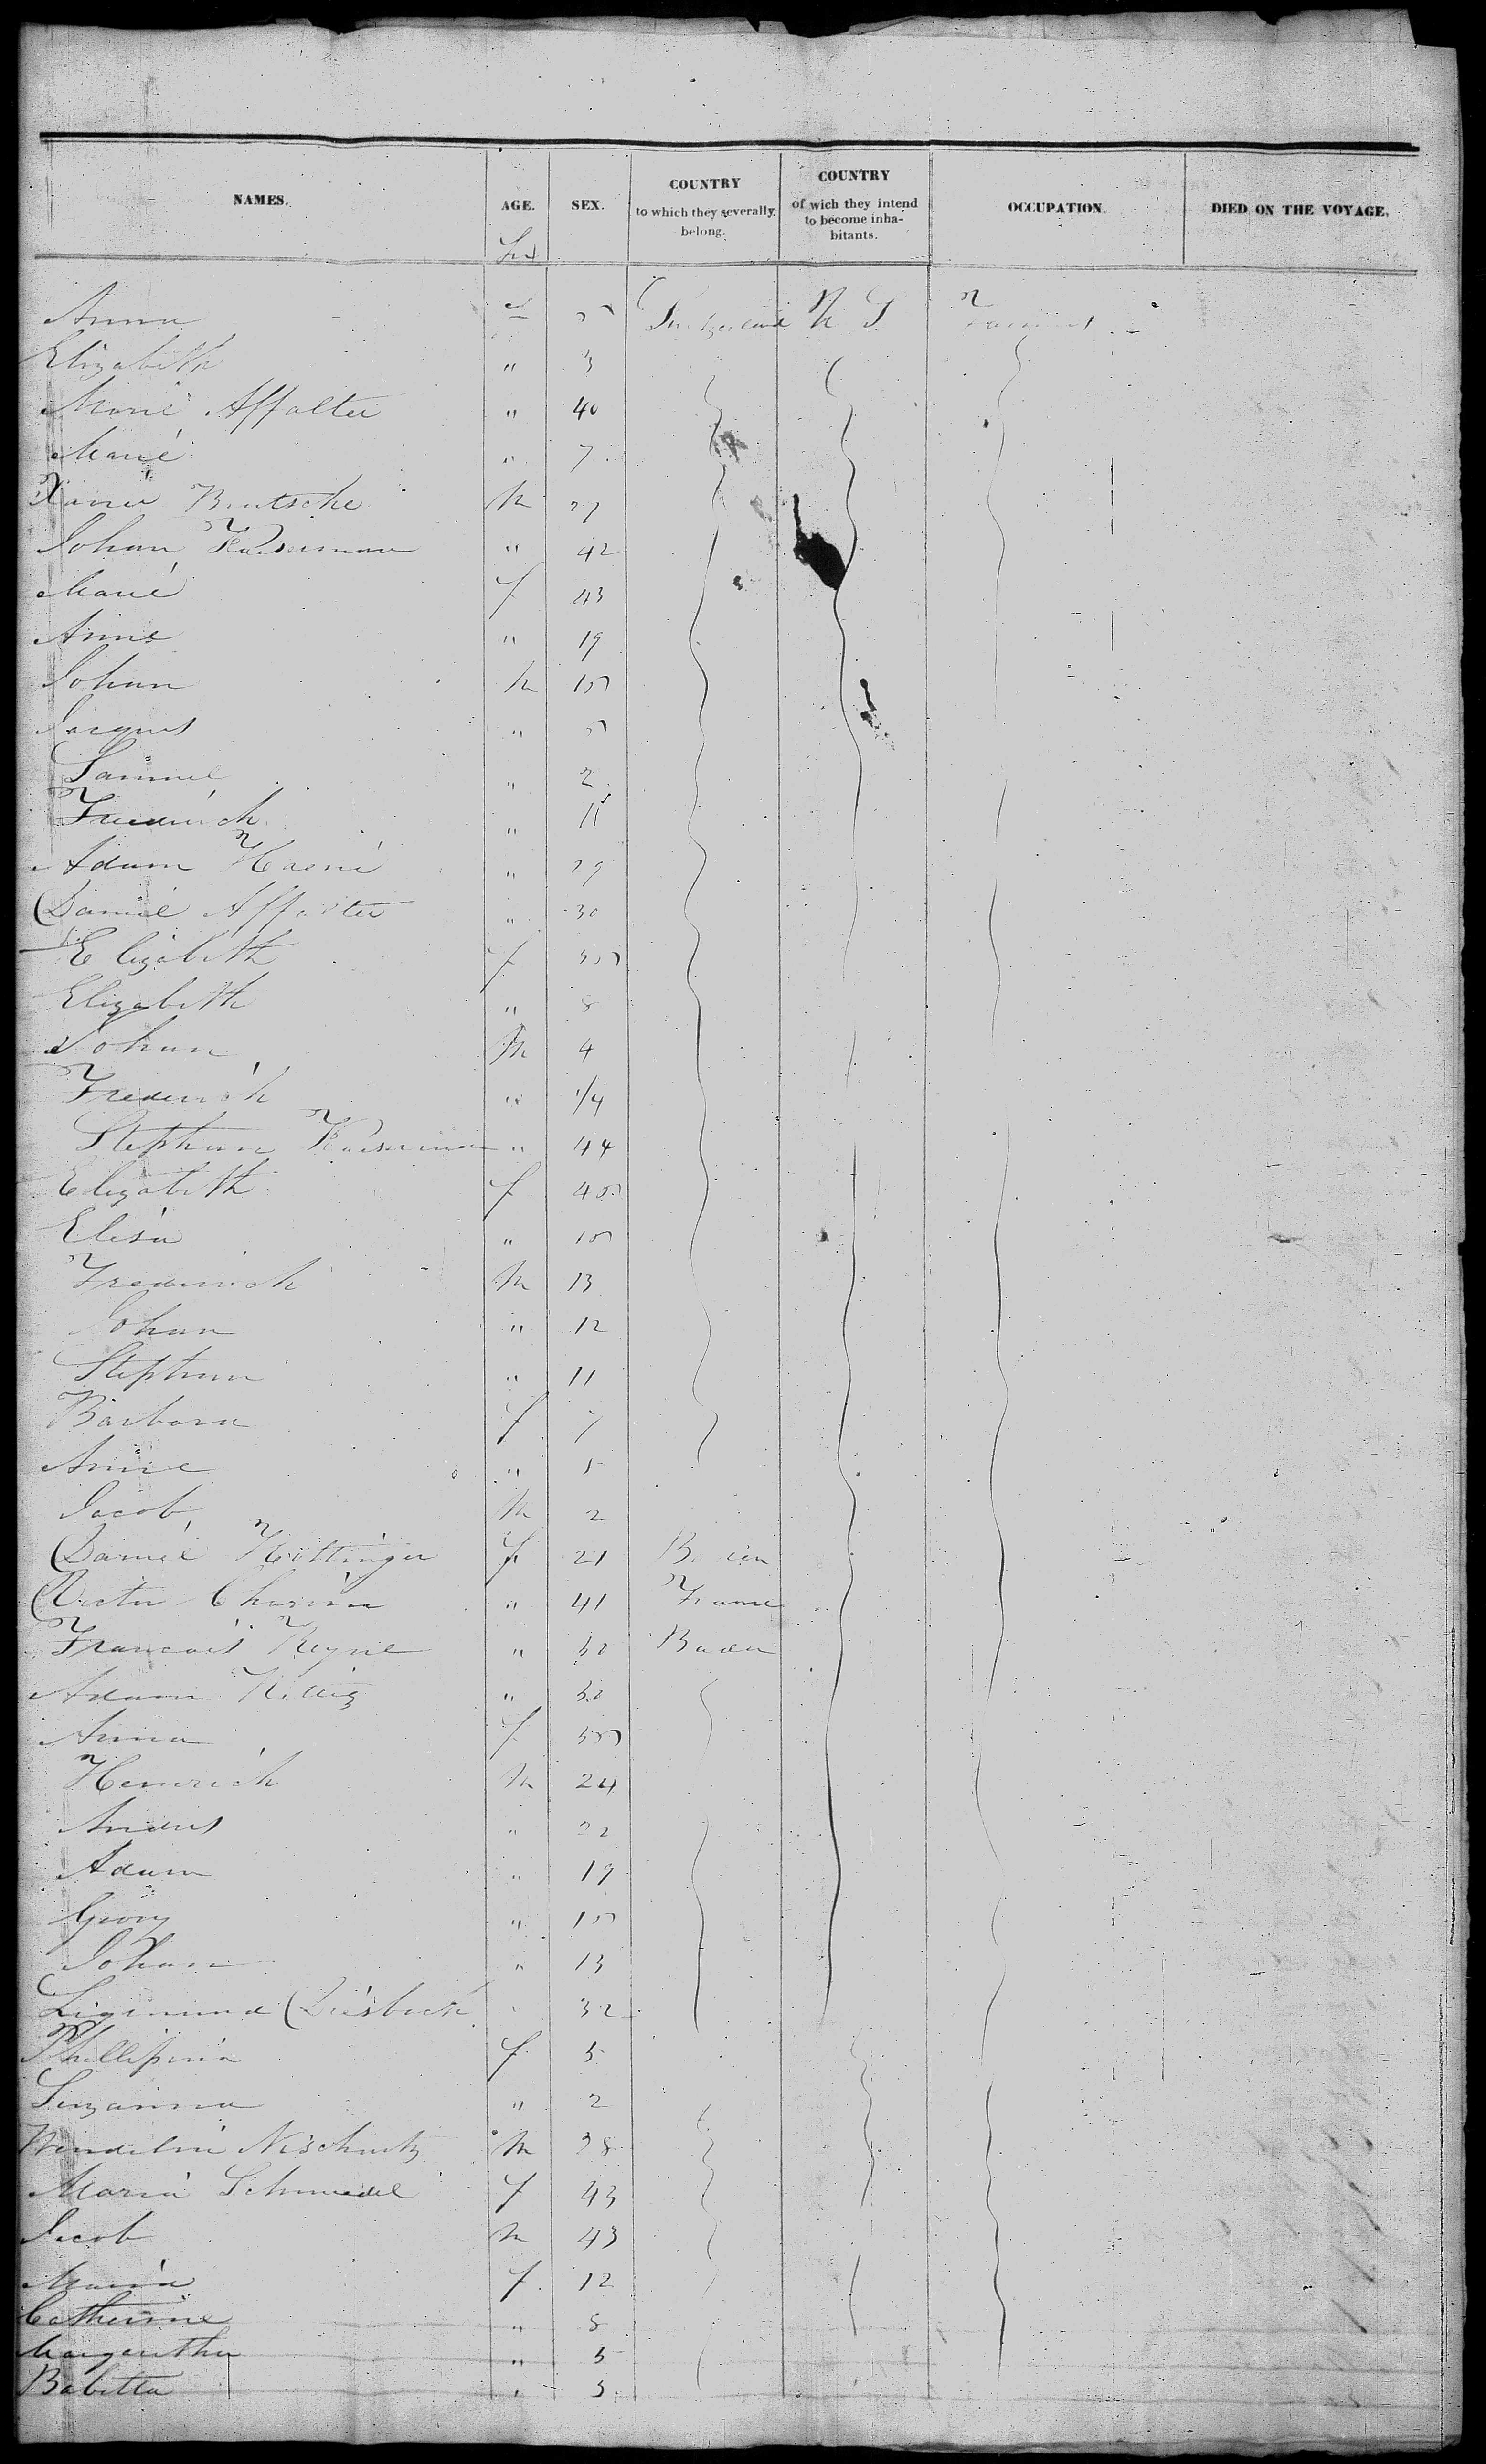 NAMES. AGE. SEX. COUNTRY to which they severally belong. COUNTRY of wich they intend to become inhabitants. OCCUPATION. DIED ON THE VOYAGE.
Anna f 5 Switzerland U S
Elizabeth " 3
Marie Affolter " 40
Marie " 7
Xavier m 27
Johan Kaiserman " 42
Marie f 43
Anne " 19
Johan m 15
Jacques " 5
Samuel " 2
Frederich "
Adam " 29
Daniel Affolter " 30
Elizabeth f 35
Elizabeth " 8
Johan m 4
Frederich " 1/4
Stephan Kaiserman " 44
Elizabeth f 45
Elisa " 15
Frederich m 13
Johan " 12
Stephan " 11
Barbara f 7
Anne " 5
Jacob m 2
Daniel Hottinger f 21
Victor " 41 France
Francois " 32 Baden
Adam " 50
Anna f 55
Heinrich m 24
Andres " 22
Adam " 19
Georg " 15
Johan " 13
Sigismund Diesbach " 32
Phillipina f 5
Suzanna " 2
Wendelin m 38
Maria Schmiedel f 43
Jacob m 43
Maria f 12
Catherine " 8
Margaretha " 5
Babetta " 3